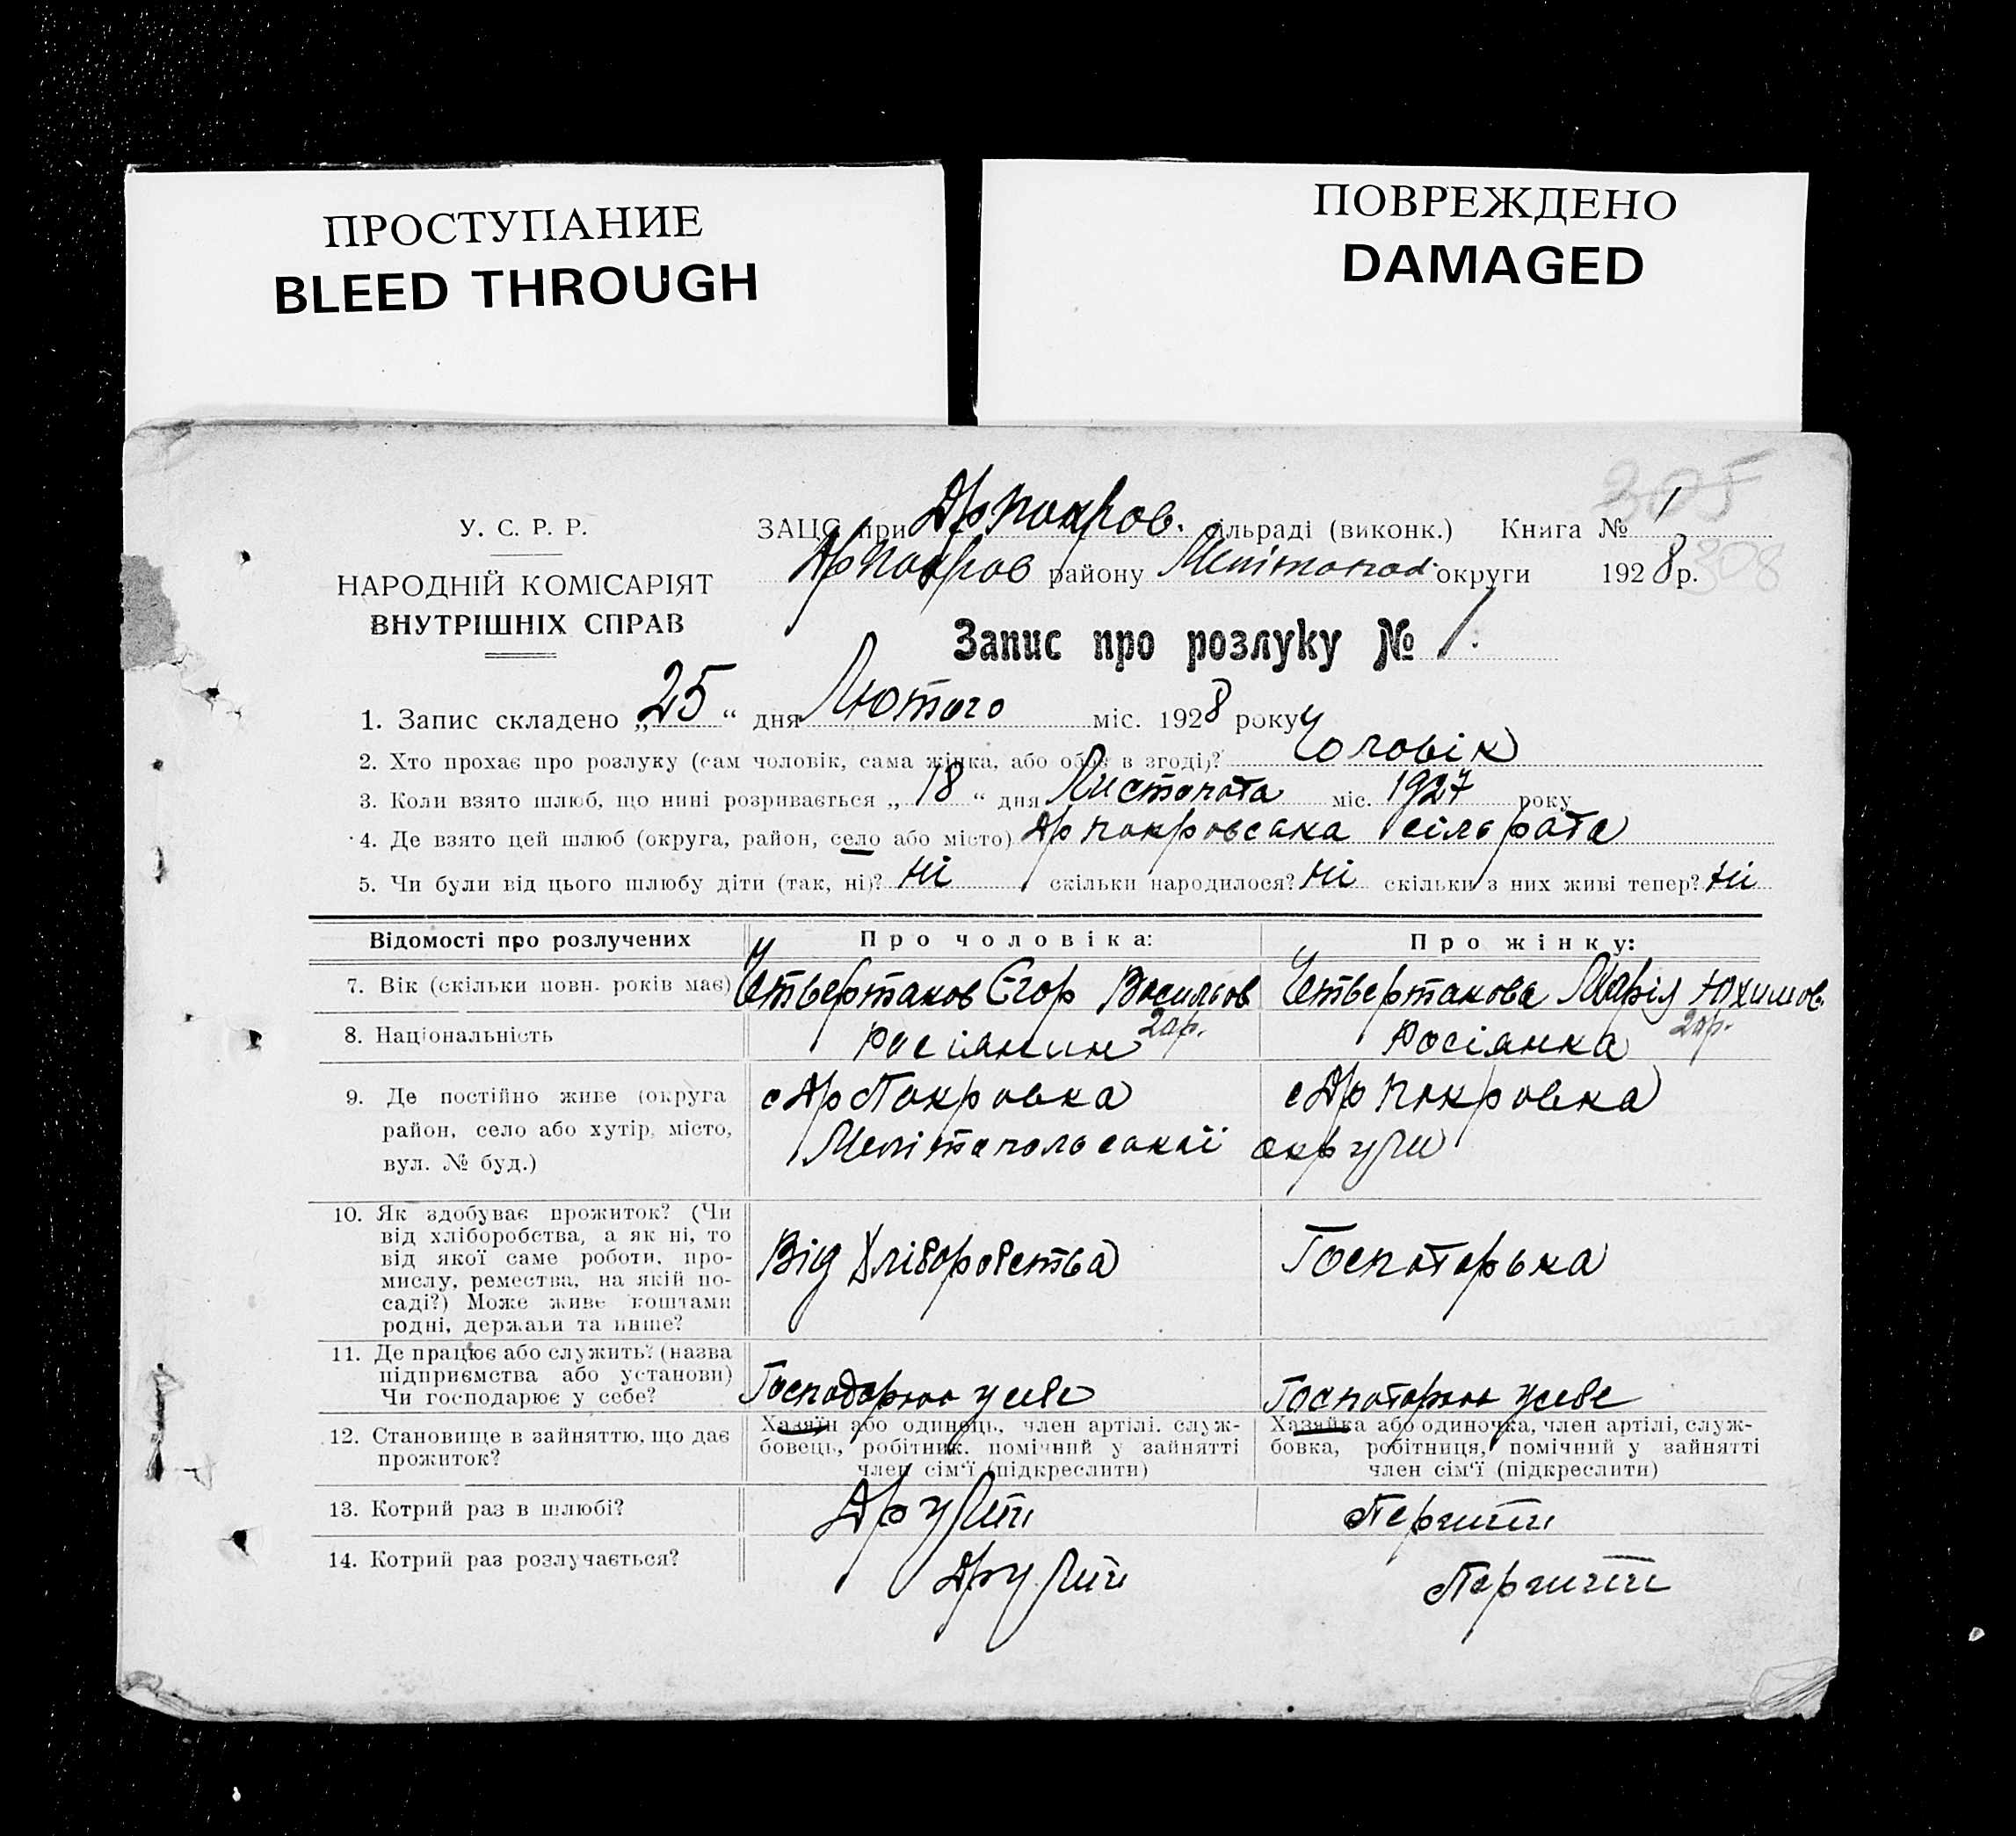 ПРОСТУПАНИЕ
BLEED THROUGH
ПОВРЕЖДЕНО
DAMAGED
305
308
У. С. Р. Р.
НАРОДНІЙ КОМІСАРІЯТ
ВНУТРІШНІХ СПРАВ
ЗАЦС при Др Покров. сільраді (виконк.) Книга № 1
Др Покров району Мелітопол. округи 1928 р.
Запис про розлуку № 1.
1. Запис складено „25“ дня Лютого міс. 1928 року
2. Хто прохає про розлуку (сам чоловік, сама жінка, або обоє в згоді)? Чоловік
3. Коли взято шлюб, що нині розривається „18“ дня Листопата міс. 1927 року
4. Де взято цей шлюб (округа, район, село або місто) Др Покровська сільрата
5. Чи були від цього шлюбу діти (так, ні)? Ні скільки народилося? Ні скільки з них живі тепер? Ні
Відомості про розлучених Про чоловіка: Про жінку:
7. Вік (скільки повн. років має) Четвертаков Єгор Васильов Четвертакова Марія Юхимов.
8. Національність Росіянин 2 др. Росіянка 2 др.
9. Де постійно живе (округа район, село або хутір, місто, вул. № буд.) с Др Покровка с Др Покровка
Мелітопольської округи
10. Як здобуває прожиток? (Чи
від хліборобства, а як ні, то
від якої саме роботи, про-
мислу, ремества, на якій по-
саді?) Може живе коштами
родні, держави та инше?
Від Хліборобства Госпотарька
11. Де працює або служить? (назва
підприємства або установи)
Чи господарює у себе?
Господарює у себе Госпотарює у себе
12. Становище в зайняттю, що дає
прожиток?
Хазяїн або одинець, член артілі. служ-
бовець, робітник. помічний у зайнятті
член сім'ї (підкреслити)
Хазяйка або одиночка, член артілі, служ-
бовка, робітниця, помічний у зайнятті
член сім'ї (підкреслити)
13. Котрий раз в шлюбі? Другий Перший
14. Котрий раз розлучається? Другий Перший